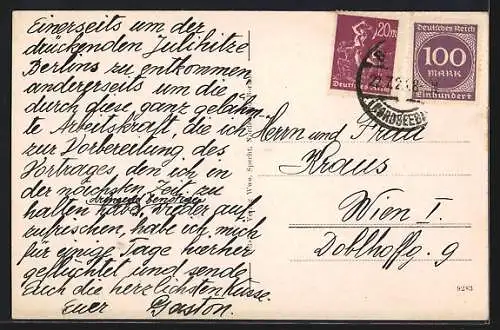 Einerseits um der
drückenden Julihitze
Berlins zu entkommen
andererseits um die
durch diese ganz gelähm-
te Arbeitskraft, die ich
zur Vorbereitung des
Vortrages, den ich in
der nächsten Zeit zu
halten habe, dringend benötige
wieder auf-
zufrischen, habe ich mich
für einige Tage hierher
geflüchtet und sende
Euch die herzlichsten Küsse.
Euer Gaston.
20m
Deutsches Reich
Deutsches Reich
100
MARK
Einhundert
(NORDSEEB
Herrn und Frau
Kraus
Wien I.
Doblhoffg. 9
9283